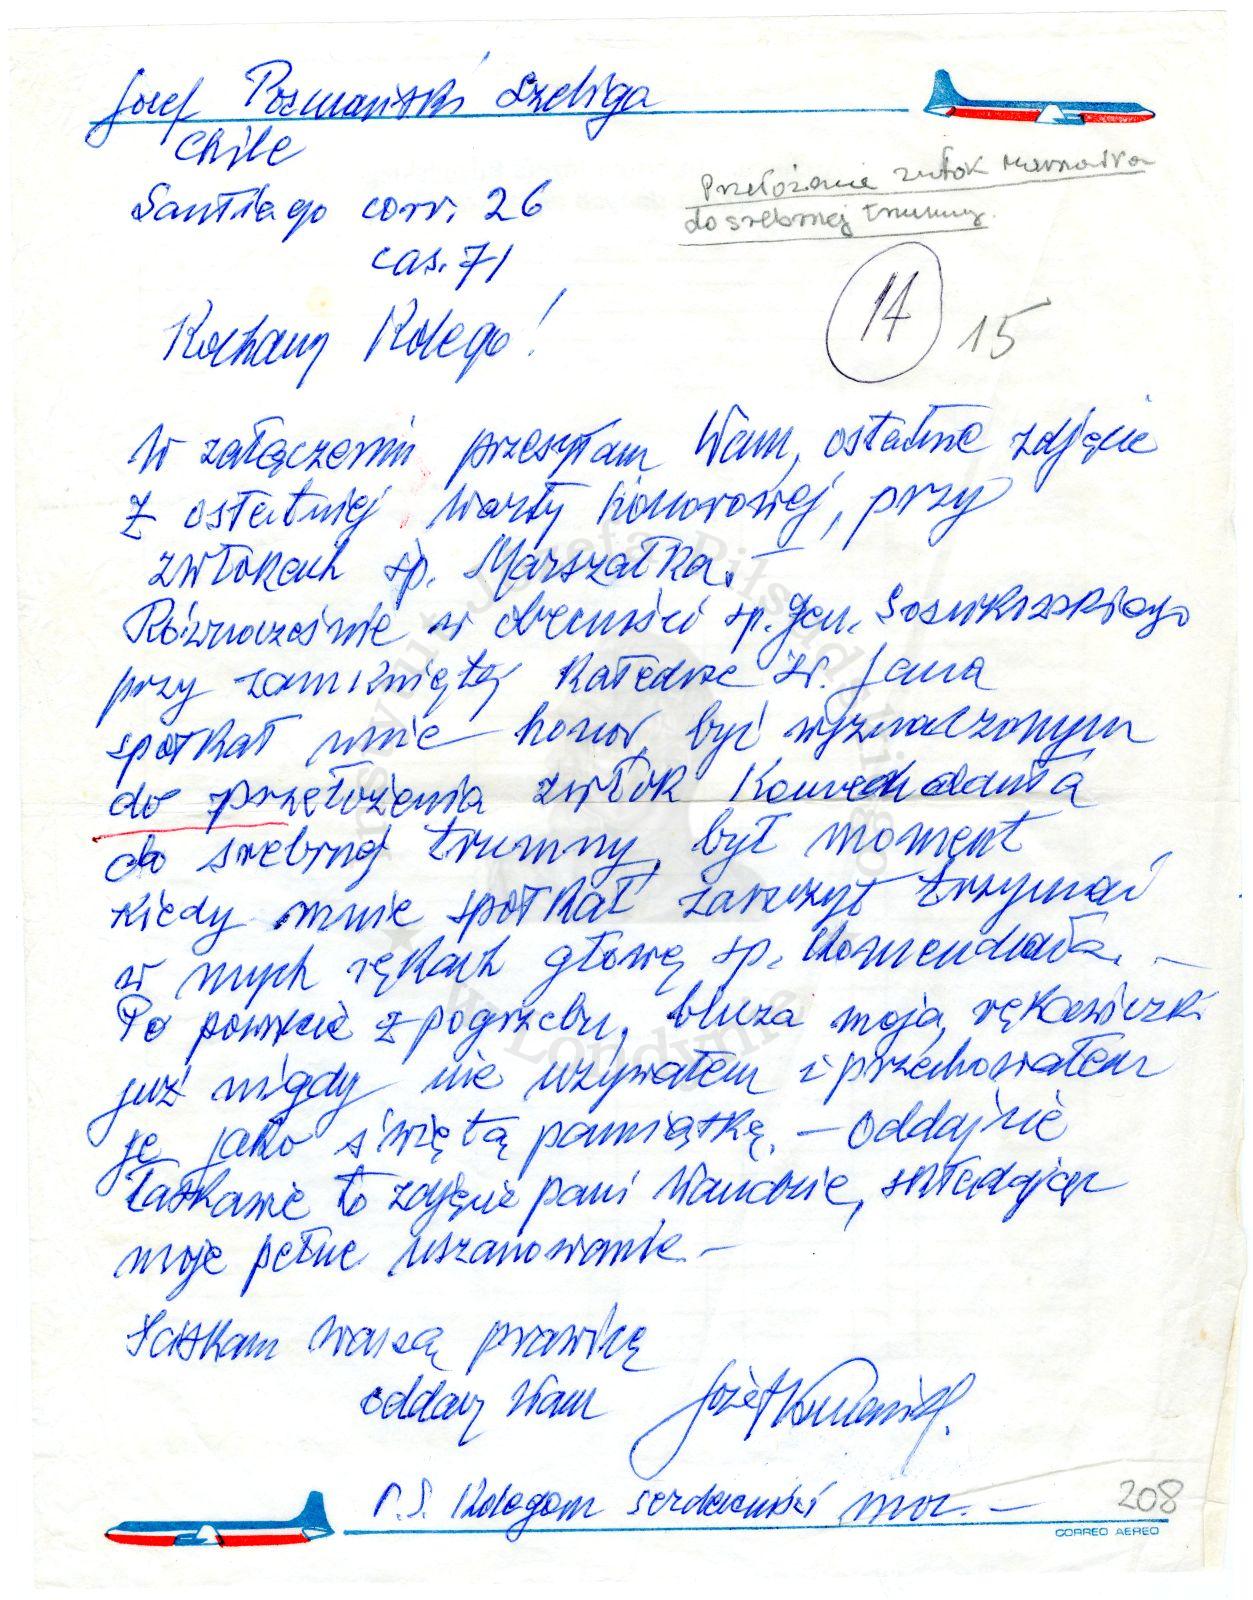 Josef Poznański Szeliga
Chile
Santiago corr. 26
cas. 71
Przełożenie zwłok Marszałka
do srebrnej trumny.
14
15
Kochany Kolego!
W załączeniu przesyłam Wam, ostatnie zdjęcie
z ostatniej warty honorowej, przy
zwłokach śp. Marszałka. —
Równocześnie w obecności śp. gen. Sosnkowskiego
przy zamkniętej Katedrze św. Jana
spotkał mnie honor, być wyznaczonym
do przełożenia zwłok Komendanta
do srebrnej trumny, był moment
kiedy mnie spotkał zaszczyt trzymać
w mych rękach głowę śp. Komendanta. —
Po powrocie z pogrzebu, bluza moją, rękawiczki
już nigdy nie używałem i przechowałem
je jako świętą pamiątkę. — Oddajcie
łaskawie to zdjęcie pani Wandzie, składając
moje pełne uszanowanie —
Ściskam Waszą prawicę
oddany Wam
Józef Poznański.
P.S. Kolegom serdeczności moc. —
208
CORREO AEREO
Instytut Józefa Piłsudskiego
★ w Londynie ★